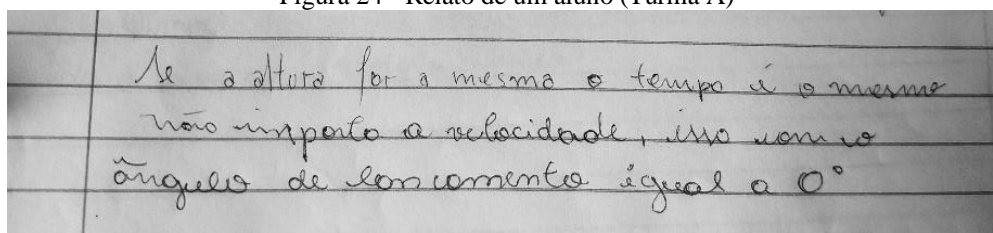 Figura 24 - Relato de um aluno (Turma A)
Se a altura for a mesma o tempo é o mesmo
não importa a velocidade, isso com o
ângulo de lançamento igual a 0°